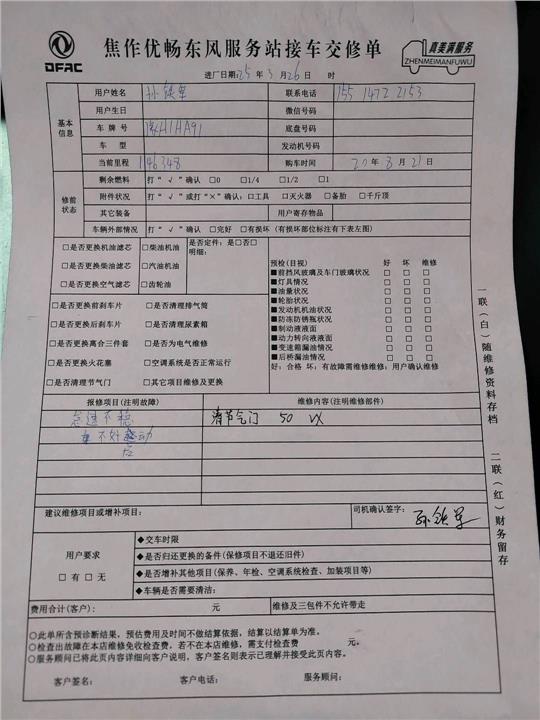 DFAC
焦作优畅东风服务站接车交修单
真美满服务
ZHENMEIMANFUWU
进厂日期:25年3月26日 时
基本信息
用户姓名 孙铁军 联系电话 155 1472 2153
用户生日 微信号码
车牌号 豫H1HA91 底盘号码
车型 发动机号码
当前里程 146348 购车时间 20年8月21日
修前状态
剩余燃料 打"√"确认 □0 □1/4 □1/2 □1
附件状况 打"√"或打"×"确认:□工具 □灭火器 □备胎 □千斤顶
其它装备 用户寄存物品
车辆外部情况 打"√"确认 □完好 □有损坏(有损坏部位标注有下表左图)
□是否更换机油滤芯 □柴油机油 是否定件:是□否□
明细:
□是否更换柴油滤芯 □汽油机油
□是否更换空气滤芯 □齿轮油
□是否更换前刹车片 □是否清理排气筒
□是否更换后刹车片 □是否清理尿素箱
□是否更换离合三件套 □是否为电气维修
□是否更换火花塞 □空调系统是否正常运行
□是否清理节气门 □其它项目维修及更换
预检(目视) 好 坏 维修
■前挡风玻璃及车门玻璃状况 □ □ □
■灯具情况 □ □ □
■油量状况 □ □ □
■轮胎状况 □ □ □
■发动机机油状况 □ □ □
■防冻防锈瓶状况 □ □ □
■制动液液面 □ □ □
■动力转向液液面 □ □ □
■变速箱漏油情况 □ □ □
■后桥漏油情况 □ □ □
好:合格 坏:有故障需维修维修:用户确认维修
报修项目(注明故障) 维修内容(注明维修部件)
怠速不稳 清节气门 50
不好
建议维修项目或增补项目: 司机确认签字: 孙铁军
用户要求
□有□无
◆交车时限
◆是否归还更换的备件(保修项目不退还旧件)
◆是否增补其他项目(保养、年检、空调系统检查、加装项目等)
◆车辆是否需要清洁:
费用合计(客户): 元 维修及三包件不允许带走
○此单所含预诊断结果,预估费用及时间不做结算依据,结算以结算单为准。
○检查出故障在本店维修免收检查费,若不在本店维修,需支付检查费 元。
○服务顾问已将此页内容详细向客户说明,客户签名则表示已理解并接受此页内容。
客户签名: 客户电话: 服务顾问:
一联(白)随维修资料存档
二联(红)财务留存